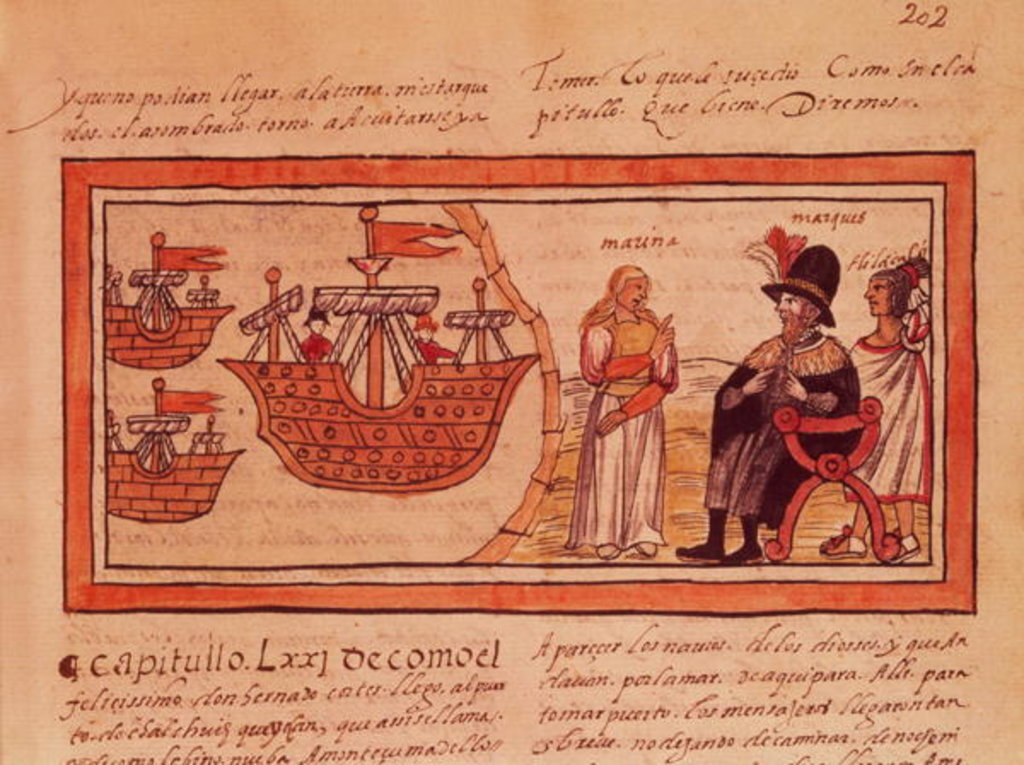 202
y que no podian llegar. a la tierra. mas tarque
dos. el asombrado. torno. a Acuitarse ya
Temer. Lo que le suçedio Como En el ca
pitullo. Que biene. Diremos.
marina
marques
capitullo. Lxxj de como el
feliçissimo. don hernado cortes. llego. al pue
to. de chalchuih queyecan, que ansi se llama.
como le bino. nueba. A monteçuma de llos
Aparecer los nauios. de los diosses. y que An
dauan. por la mar. De aqui para. Alla. para
tomar puerto. los mensajeros llegaron tan
breue. no dejando de caminar. de noche ni